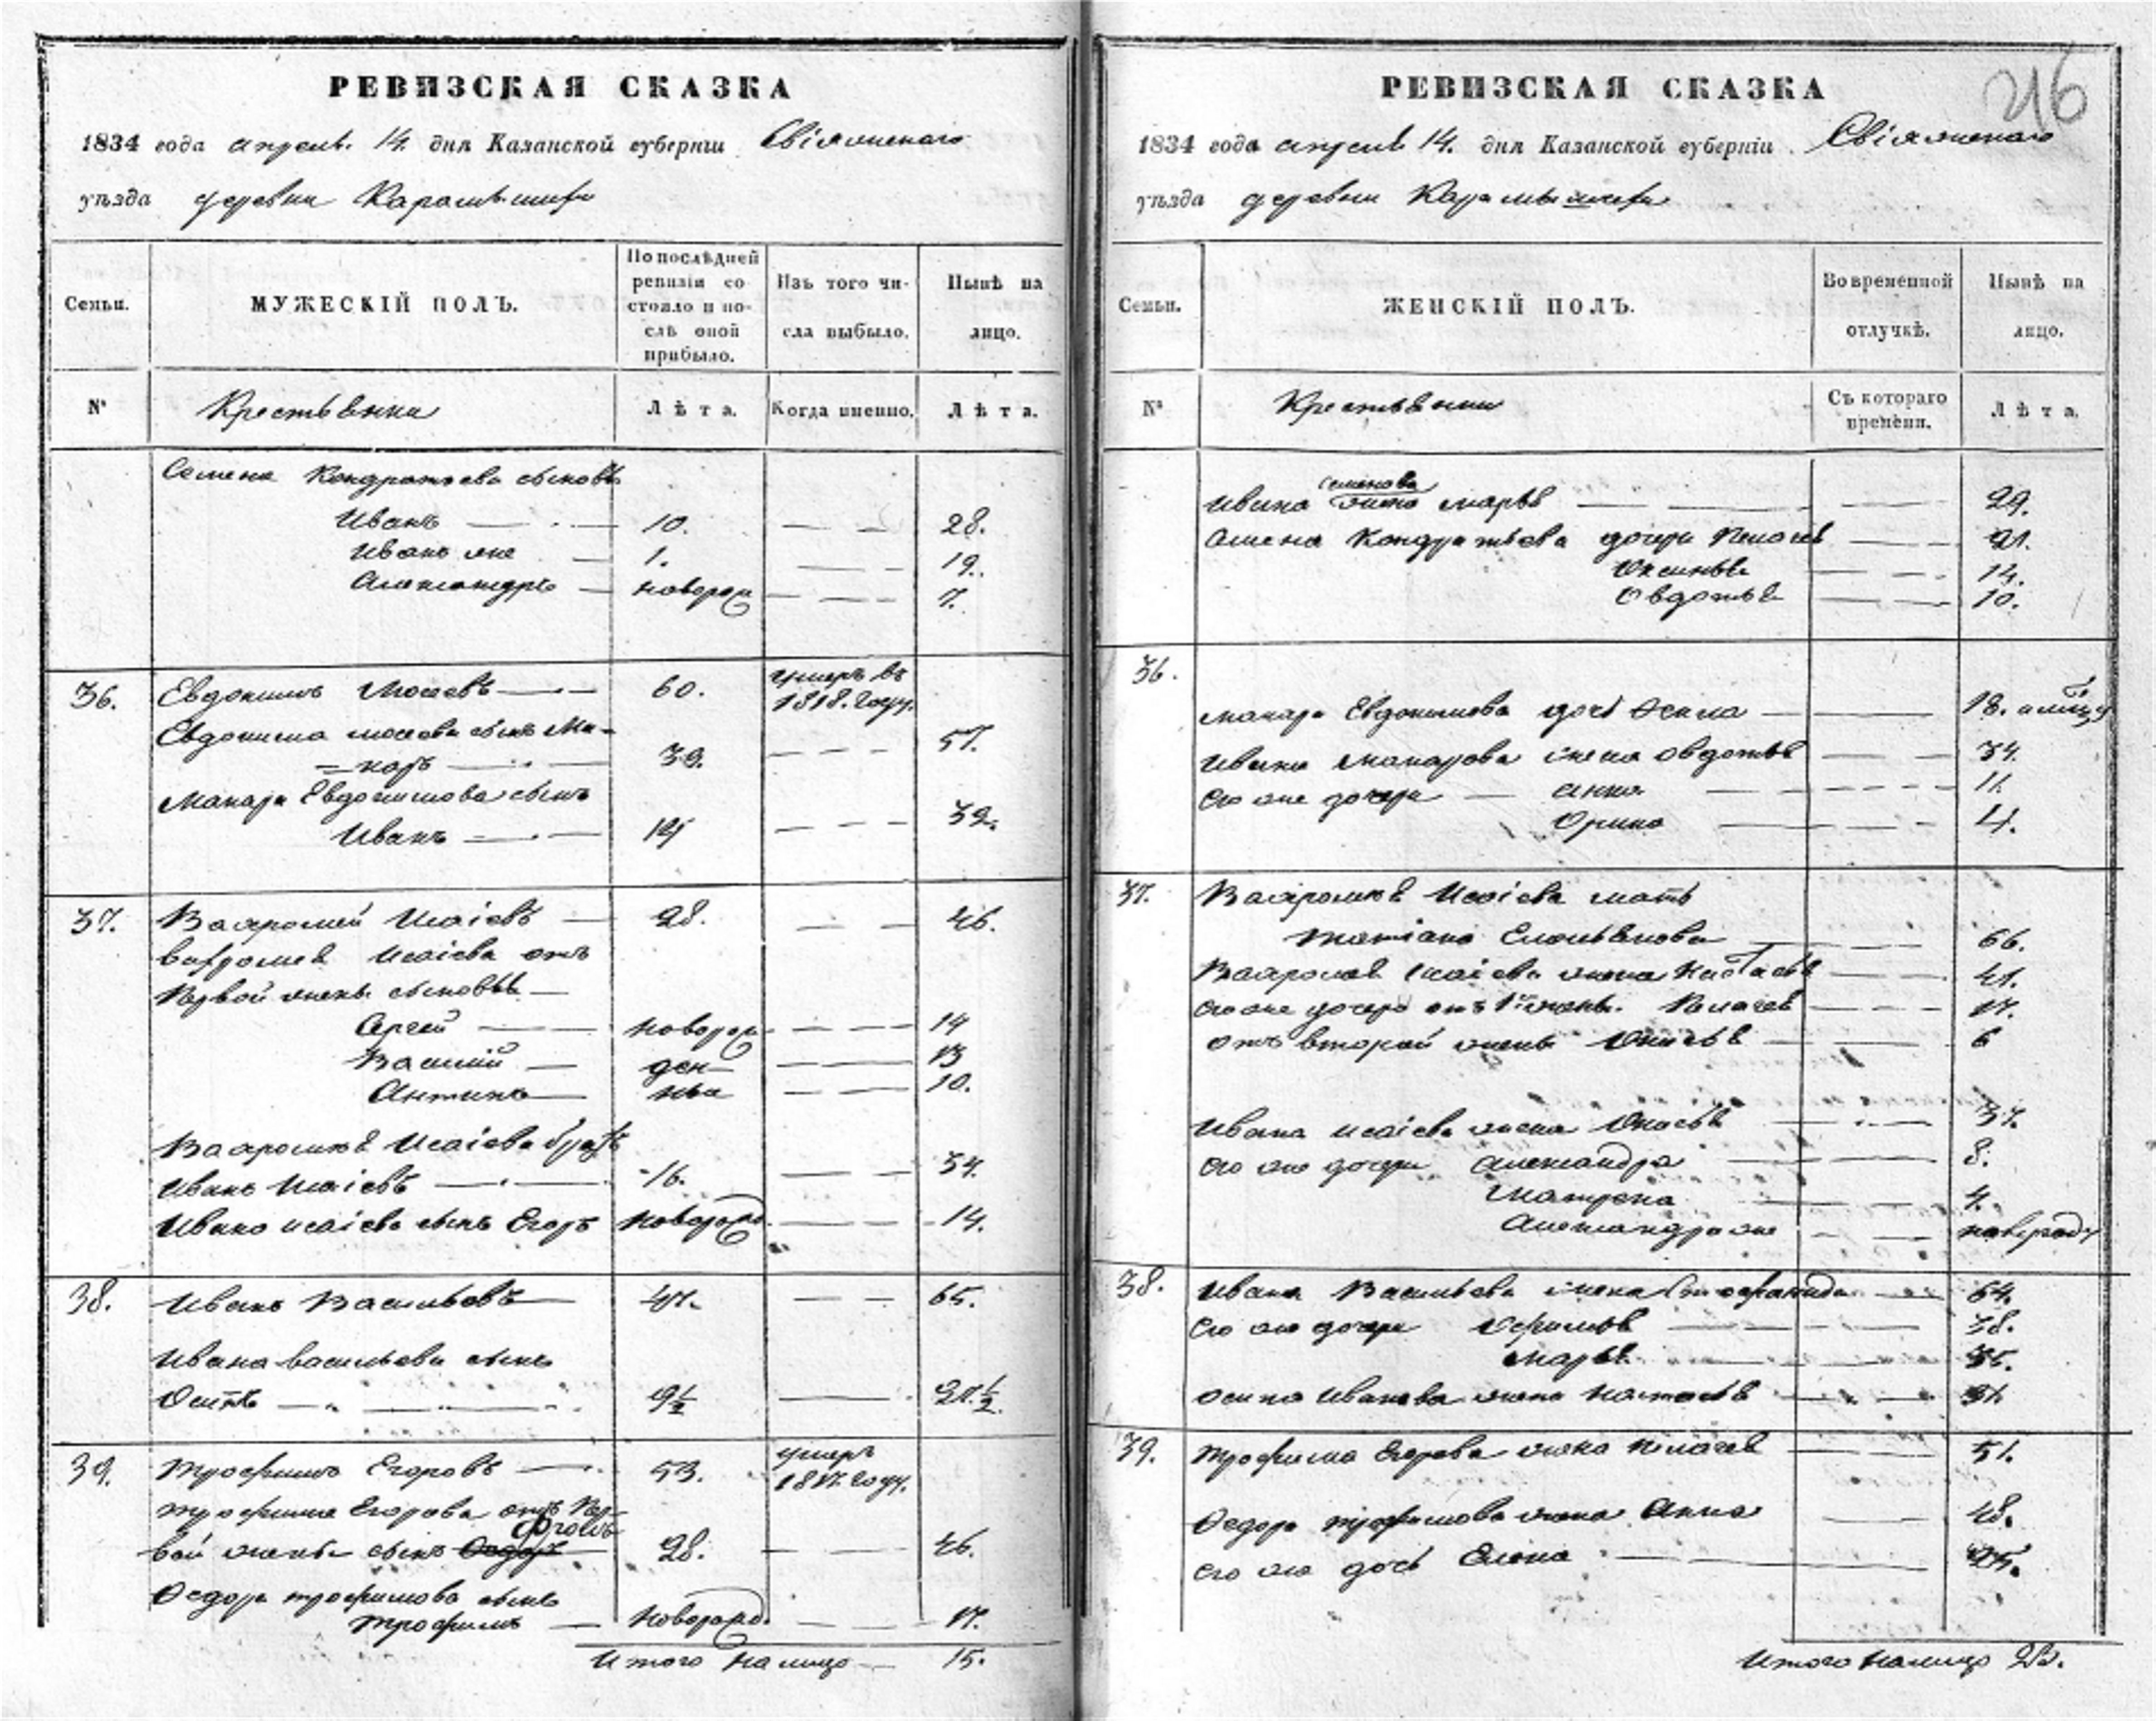 РЕВИЗСКАЯ СКАЗКА
1834 года апреля 14. дня Казанской губернии Свіяжскаго
уѣзда деревни
Семьи.
МУЖЕСКІЙ ПОЛЪ.
По послѣдней ревизіи состояло и послѣ оной прибыло.
Изъ того числа выбыло.
Нынѣ на лицо.
№
Крестьяне
Лѣта.
Когда именно.
Лѣта.
Семена Кондратьева сыновья
Иванъ 10. 28.
Иванъ же 1. 19.
Александръ новорож 7.
36. Евдокимъ Мосеевъ 60. умеръ въ 1818. году.
Евдокима мосеева сынъ Ма-
=каръ 39. 57.
Макара Евдокимова сынъ
Иванъ 32.
37. Вафромей Исаіевъ 28. 46.
Вафромея Исаіева отъ
Первой жены сыновья
Сергей новорож 14
Василій ден 13
Антипъ ные 10.
Вафромея Исаіева братъ
Иванъ Исаіевъ 16. 34.
Ивана исаіева сынъ Егоръ новорожд. 14.
38. Иванъ Васильевъ 47. 65.
Ивана васильева сынъ
Осипъ 9½ 27.½
39. Трофимъ Егоровъ 53. умеръ 1817. году.
трофима Егорова отъ Пер-
вой жены сынъ 28. 46.
Федора трофимова сынъ
Трофимъ новорожд. 17.
Итого на лицо 15.
216
РЕВИЗСКАЯ СКАЗКА
1834 года апреля 14. дня Казанской губерніи Свіяжскаго
уѣзда деревни
Семьи.
ЖЕНСКІЙ ПОЛЪ.
Во временной отлучкѣ.
Нынѣ на лицо.
№
Крестьянки
Съ котораго времени.
Лѣта.
семенова
Ивана жена марья 29.
Семена Кондратьева дочери Пелагея 21.
Оксинья 14.
Овдотья 10.
36.
макара Евдокимова дочь 18.
Ивана макарова жена овдотья 34.
Его же дочери анна 11.
Орина 4.
37. Вафромея Исаіева мать
татіана Емельянова 66.
Вафромея Исаіева жена Настасья 41.
Его же дочери отъ 1й жены Пелагея 17.
отъ второй жены 6
Ивана исаіева жена 37.
Его же дочери александра 8.
Матрена 4.
Александра же
38. Ивана Васильева жена 64.
Его же дочери 38.
Марья 35.
осипа Иванова жена настасья
39. Трофима Егорова жена пелагея 51.
Федора трофимова жена Анна 48.
Его же дочь Елена
Итого на лицо